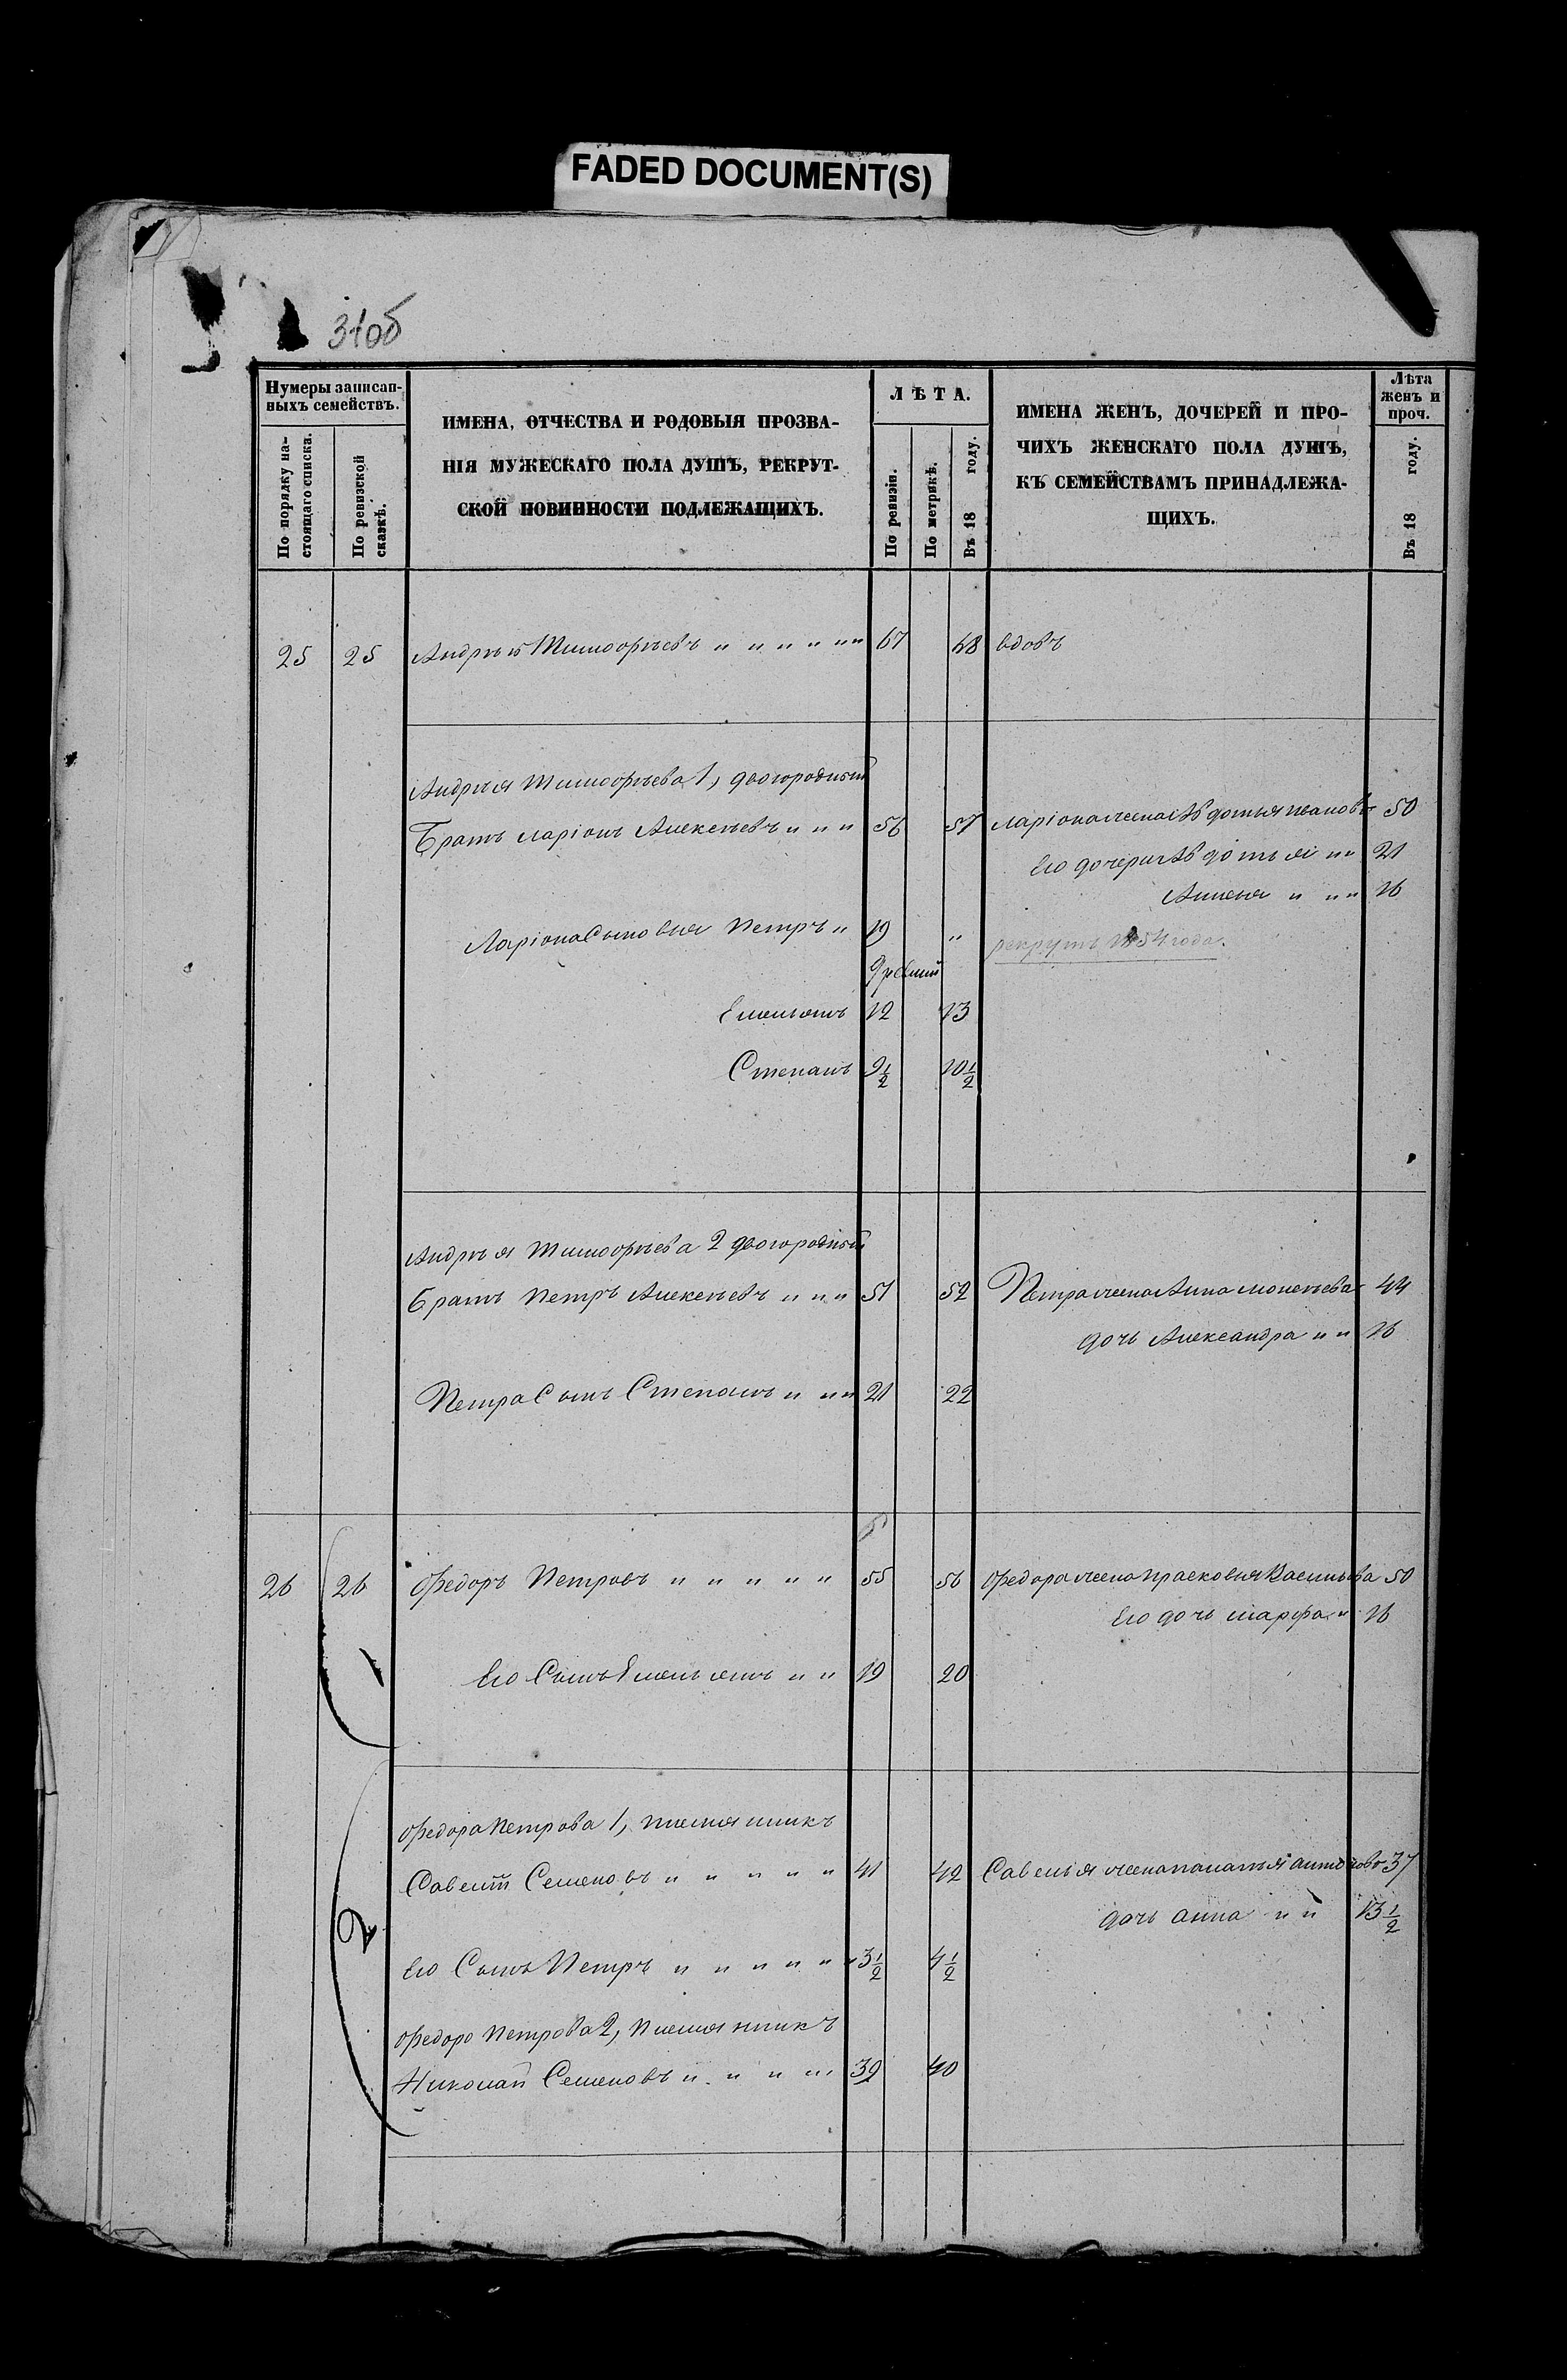 FADED DOCUMENT(S)
31об
Нумеры записан-
ныхъ семействъ.
По порядку на-
стоящаго списка.
По ревизской
сказкѣ.
ИМЕНА, ОТЧЕСТВА И РОДОВЫЯ ПРОЗВА-
НІЯ МУЖЕСКАГО ПОЛА ДУШЪ, РЕКРУТ-
СКОЙ ПОВИННОСТИ ПОДЛЕЖАЩИХЪ.
ЛѢТА.
По ревизіи.
По метрикѣ.
Въ 18 году.
ИМЕНА ЖЕНЪ, ДОЧЕРЕЙ И ПРО-
ЧИХЪ ЖЕНСКАГО ПОЛА ДУШЪ,
КЪ СЕМЕЙСТВАМЪ ПРИНАДЛЕЖА-
ЩИХЪ.
Лѣта
женъ и
проч.
Въ 18 году.
25 25 Андрѣй Тимофѣевъ " " " " " " 67 68 вдовъ
Андрѣя Тимофѣева 1, двоюродный
Братъ Ларіонъ Алексѣевъ " " " 56 57 Ларіона жена Авдотья Иванова 50
Его дочери Авдотья " " 21
Аксинья " " " 16
Ларіона Сыновья Петръ " 19 " рекрутъ 1854 года.
древній
Емельянъ 12 13
Степанъ 9½ 10½
Андрѣя Тимофѣева 2 двоюродный
Братъ Петръ Алексѣевъ " " " 51 52 Петра жена Анна Моисѣева 44
дочь Александра " " 16
Петра Сынъ Степанъ " " " 21 22
26 26 Федоръ Петровъ " " " " " 55 56 Федора жена Прасковья Васильева 50
Его дочь Марфа " 16
Его Сынъ Емельянъ " " 19 20
Федора Петрова 1, племянникъ
Савелій Семеновъ " " " " " 41 42 Савелья жена Паланья Антонова 37
дочь Анна " " 13½
2
Его Сынъ Петръ " " " " " " 3½ 4½
Федора Петрова 2, племянникъ
Николай Семеновъ " " " " 39 40